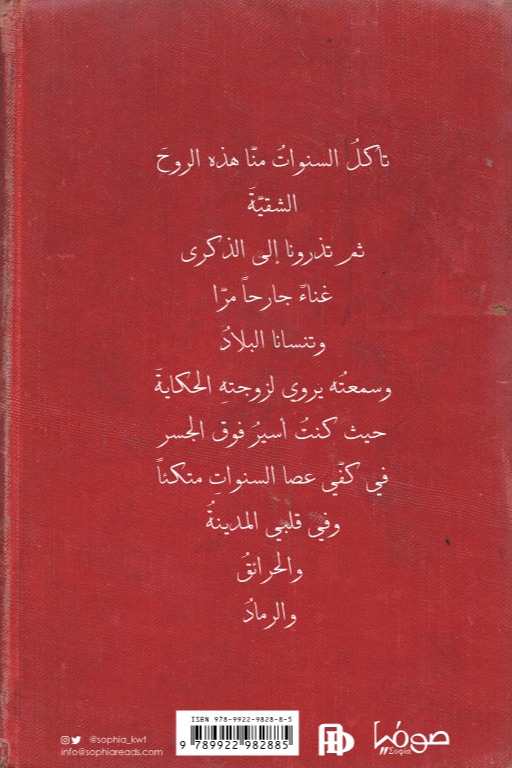 تأكلُ السنواتُ منّا هذه الروحَ
الشقيّةَ
ثم تذرونا إلى الذكرى
غناءً جارحاً مرّا
وتنسانا البلادُ
وسمعتُه يروي لزوجتهِ الحكايةَ
حيث كنتُ أسيرُ فوق الجسر
في كفّي عصا السنواتِ متكئاً
وفي قلبي المدينةُ
والحرائقُ
والرمادُ
ISBN 978-9922-9828-8-5
9 789922 982885
@sophia_kwt
info@sophiareads.com
صوفيا
Σοφία